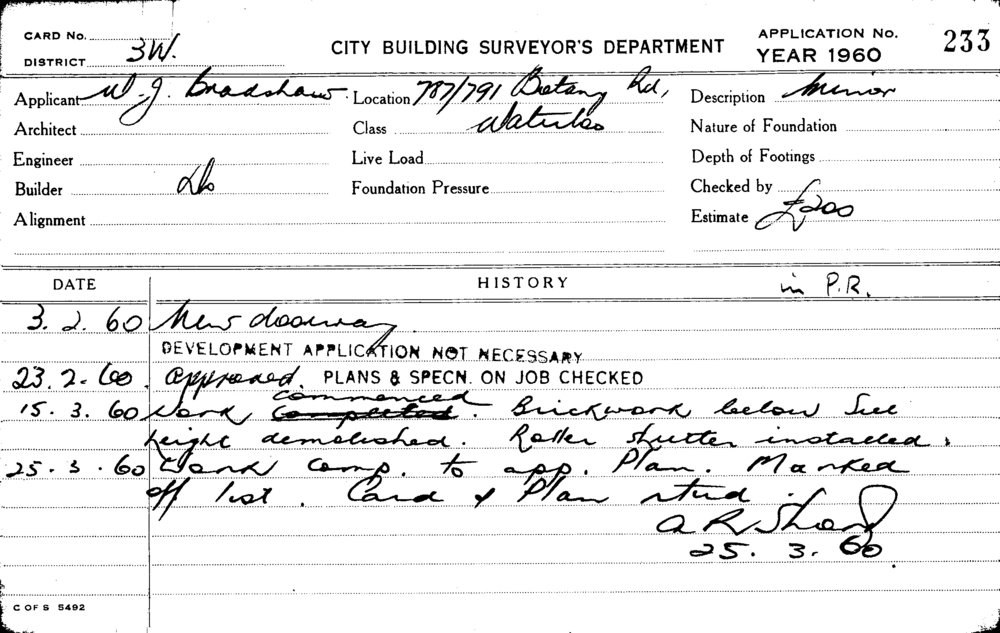 CARD No.
DISTRICT 3W.
CITY BUILDING SURVEYOR'S DEPARTMENT
APPLICATION No. 233
YEAR 1960
Applicant W. J. Bradshaw. Location 787/791 Botany Rd, Description Minor
Architect Class Waterloo Nature of Foundation
Engineer Live Load Depth of Footings
Builder Do Foundation Pressure Checked by
Alignment Estimate £200
DATE HISTORY in P.R.
3. 2. 60 New doorway.
DEVELOPMENT APPLICATION NOT NECESSARY
23. 2. 60. Approved. PLANS & SPECN. ON JOB CHECKED
commenced
15. 3. 60 Work Completed. Brickwork below
height demolished. Roller shutter installed.
25. 3. 60 Work comp. to app. Plan. Marked
off list. Card & Plan rtnd.
A R
25. 3. 60
C OF S 5492